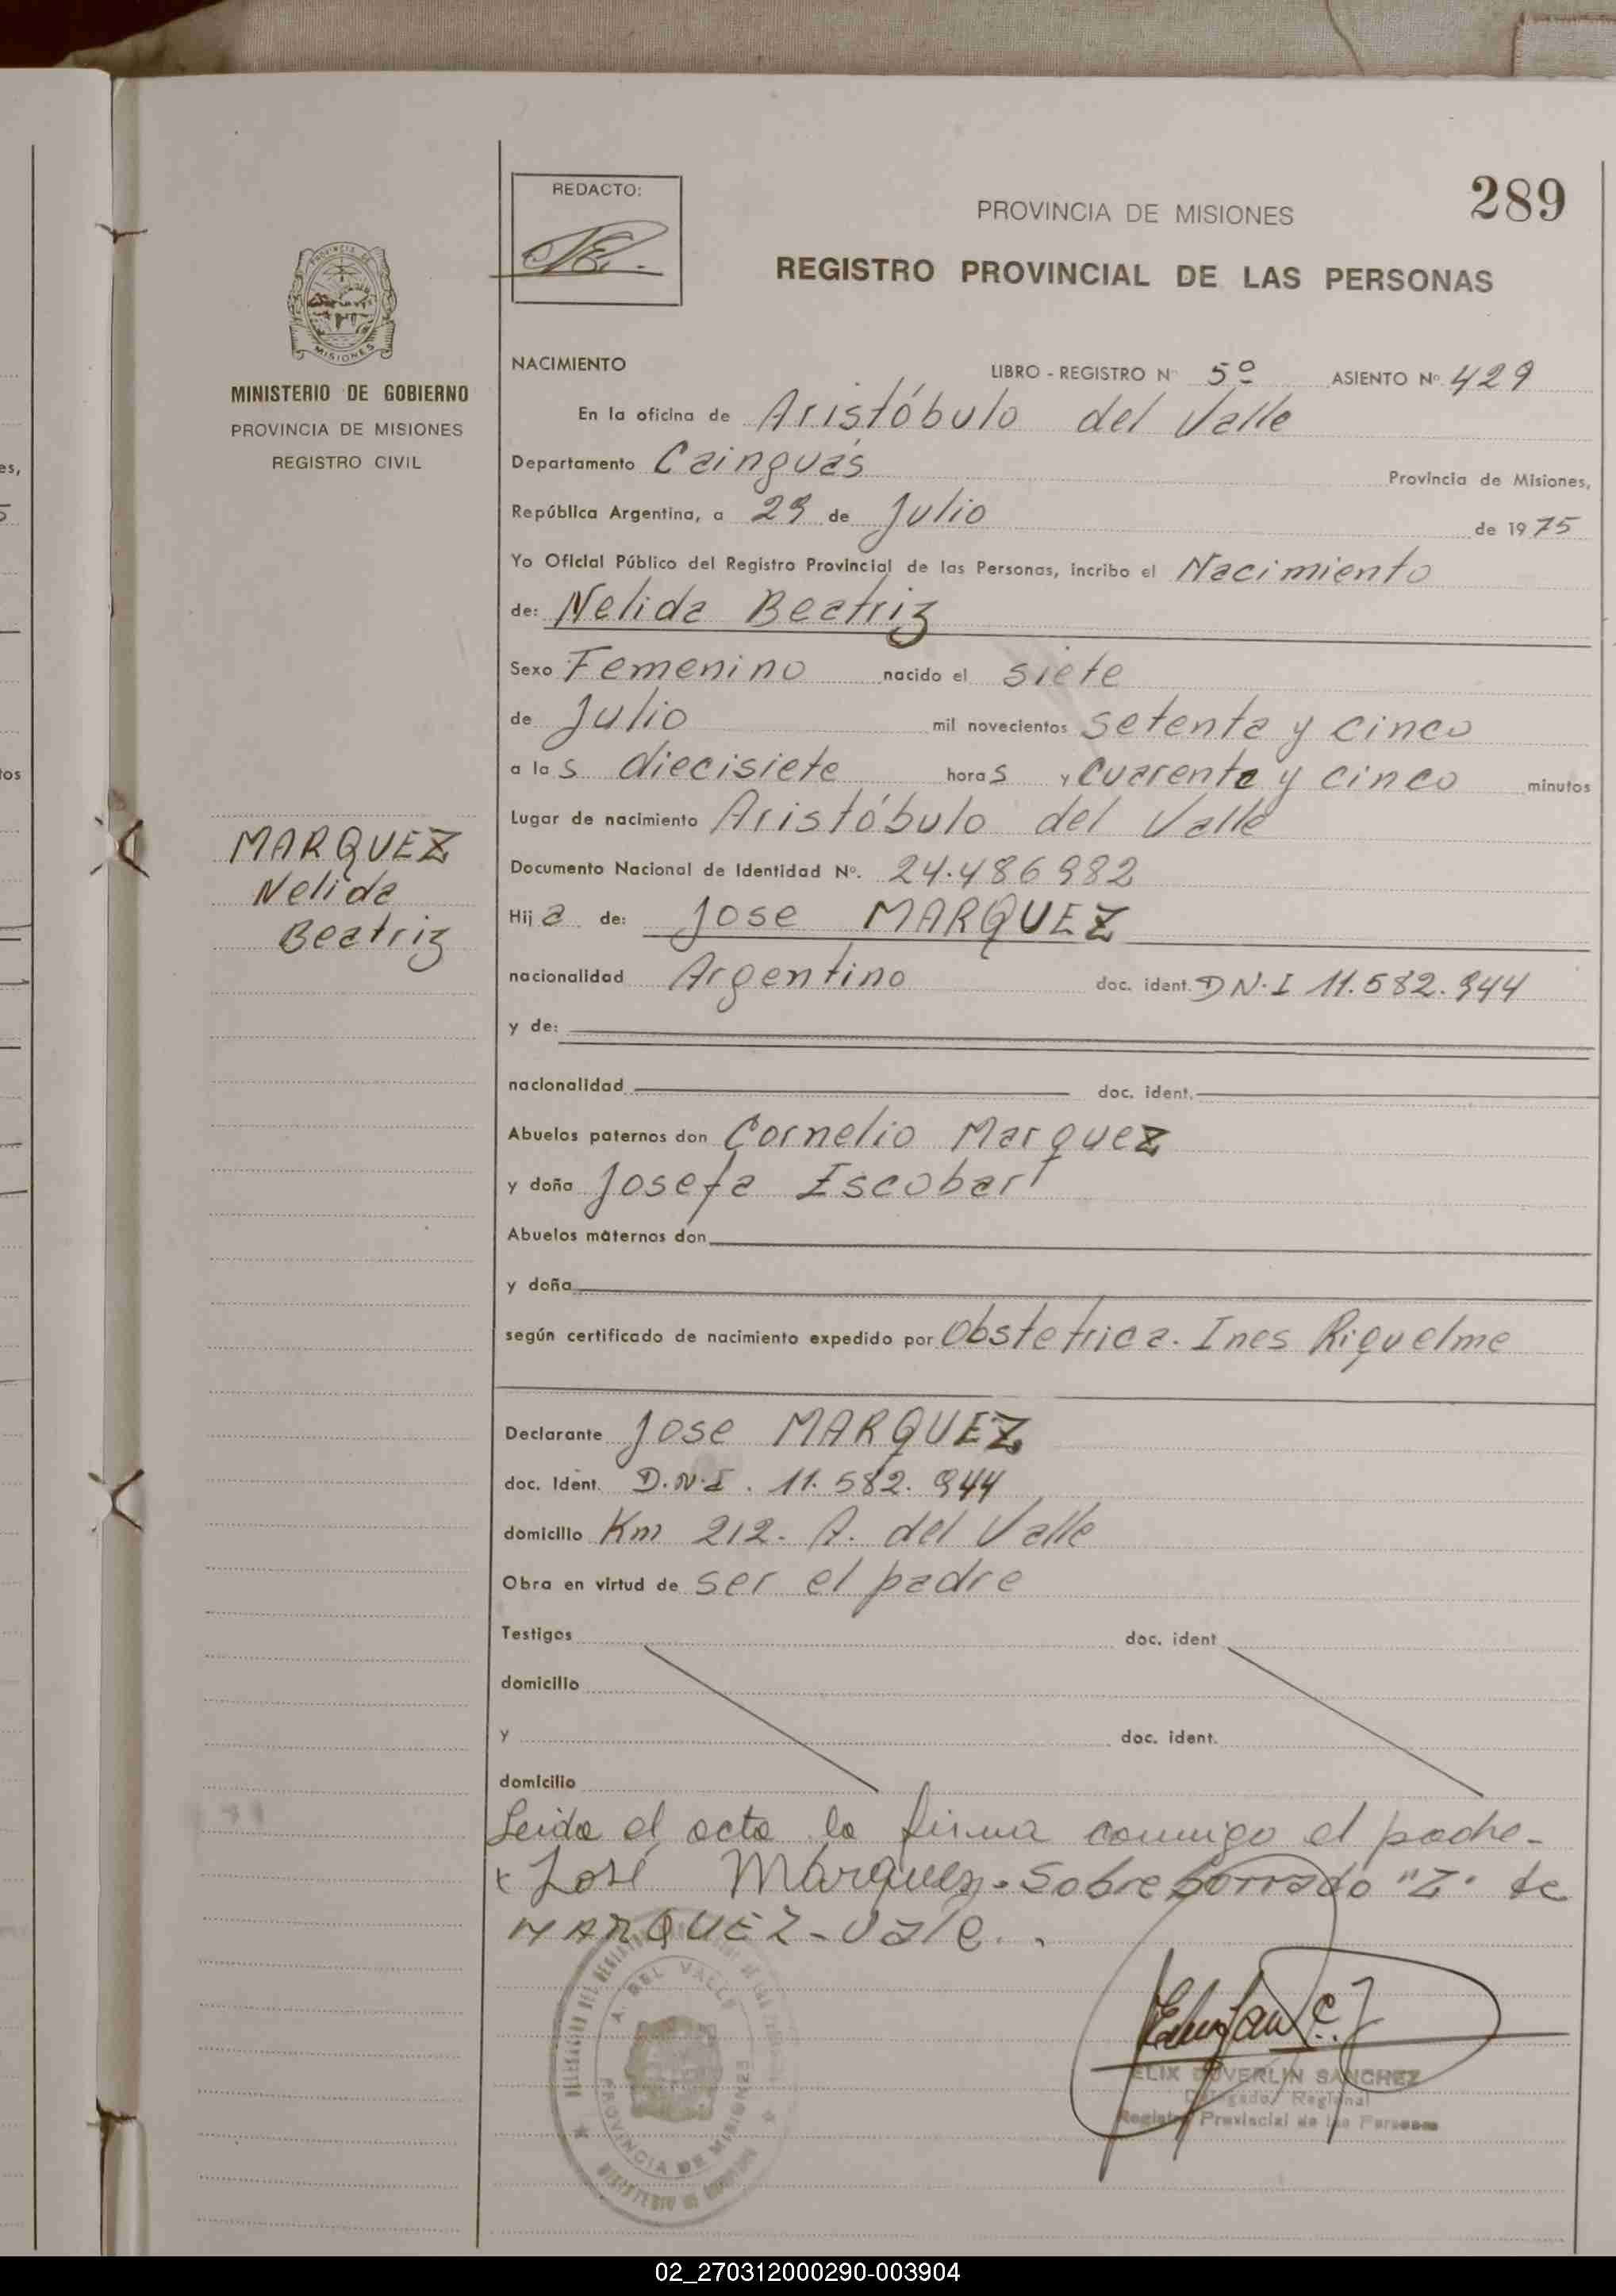 289
REDACTO:
PROVINCIA DE MISIONES
REGISTRO PROVINCIAL DE LAS PERSONAS
PROVINCIA DE
MISIONES
MINISTERIO DE GOBIERNO
PROVINCIA DE MISIONES
REGISTRO CIVIL
MARQUEZ
Nelida
Beatriz
NACIMIENTO LIBRO - REGISTRO Nº 5º ASIENTO Nº 429
En la oficina de Aristóbulo del Valle
Departamento Cainguás Provincia de Misiones,
República Argentina, a 29 de Julio de 1975
Yo Oficial Público del Registro Provincial de las Personas, incribo el Nacimiento
de: Nelida Beatriz
Sexo Femenino nacido el siete
de Julio mil novecientos setenta y cinco
a las diecisiete horas y cuarenta y cinco minutos
Lugar de nacimiento Aristóbulo del Valle
Documento Nacional de Identidad Nº. 24.486982
Hija de: Jose MARQUEZ
nacionalidad Argentino doc. ident. D N.I 11.582.944
y de:
nacionalidad doc. ident.
Abuelos paternos don Cornelio Marquez
y doña Josefa Escobar
Abuelos maternos don
y doña
según certificado de nacimiento expedido por Obstetrica. Ines Riquelme
Declarante Jose MARQUEZ
doc. Ident. D.N.I. 11.582.944
domicilio Km 212. A. del Valle
Obra en virtud de ser el padre
Testigos doc. ident
domicilio
y doc. ident.
domicilio
Leida el acta la firma conmigo el padre-
x José Márquez. Sobreborrado "Z" de
MARQUEZ-Vale..
A. DEL VALLE
PROVINCIA DE MISIONES
ELIX DUVERLIN SANCHEZ
Delegado Regional
Registro Provincial de las Personas
02_270312000290-003904